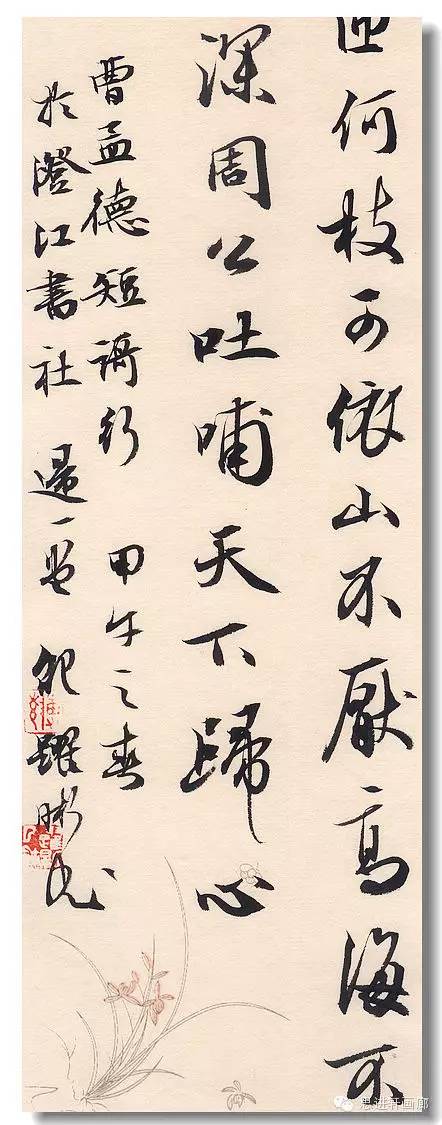 匝何枝可依山不厭高海不
深周公吐哺天下歸心
曹孟德短謌行 甲午之春
於澄江書社 躍彬
思进轩画廊